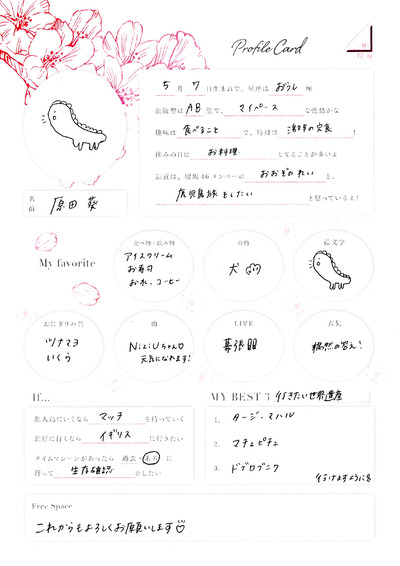 Profile Card
5月7日生まれで、星座はおうし座
血液型はAB型で、マイペースな性格かな
趣味は食べることで、特技は激辛の完食!
休みの日はお料理してることが多いよ
最近は、櫻坂46メンバーのおおぞのれいと、
鹿児島旅をしたいと思っているよ!
名前 原田 葵
My favorite
食べ物/飲み物
アイスクリーム
お寿司
お水、コーヒー
動物
犬
絵文字
おにぎりの具
ツナマヨ
いくら
曲
NiziUちゃん♡
元気になれます!
LIVE
幕張
衣装
偶然の答え!
If...
無人島にいくならマッチを持っていく
旅行に行くならイギリスに行きたい
タイムマシーンがあったら 過去・未来 に
行って生存確認をしたい
MY BEST 3 行きたい世界遺産
1. タージ・マハル
2. マチュピチュ
3. ドブロブニク
行けますように
Free Space
これからもよろしくお願いします♡